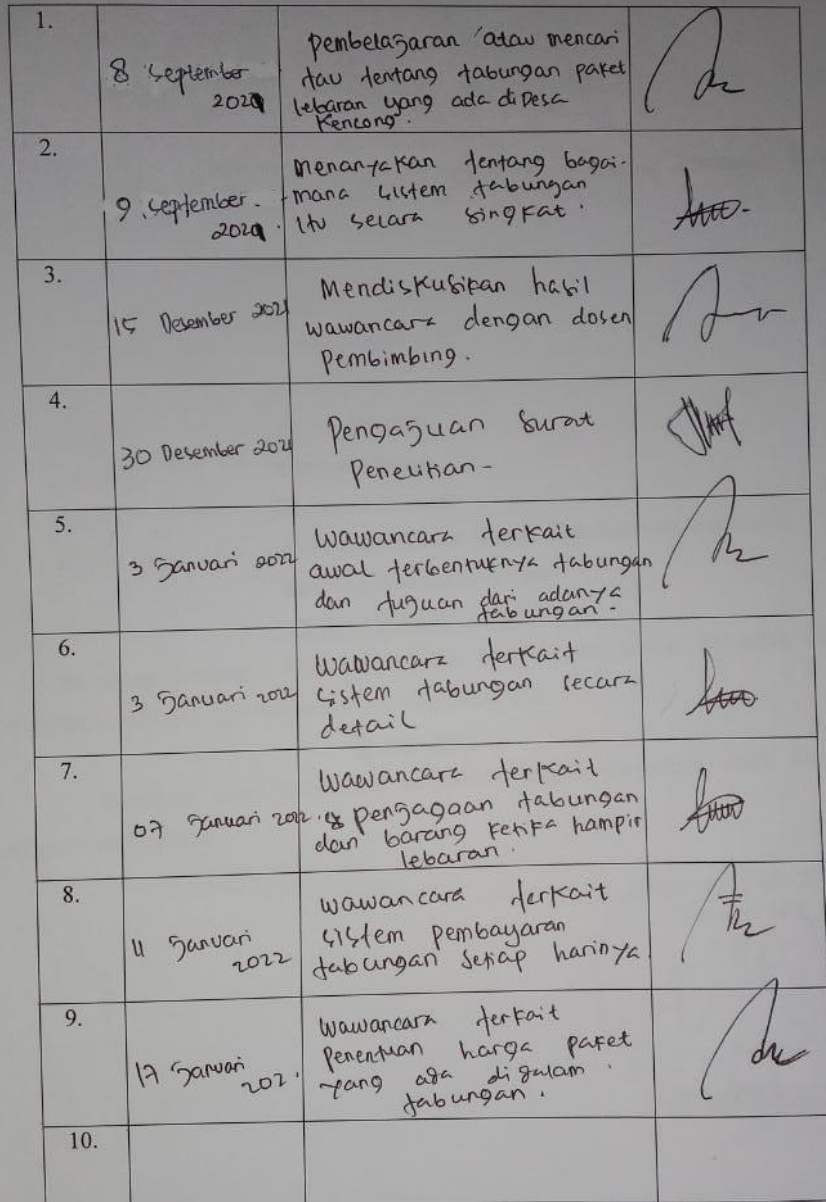 1.
8 September
2021
Pembelajaran atau mencari
tau tentang tabungan paket
lebaran yang ada di Desa
Kencong.
2.
9 September
2021
menanyakan tentang bagai-
mana sistem tabungan
itu secara singkat.
3.
15 Desember 2021
Mendiskusikan hasil
wawancara dengan dosen
Pembimbing.
4.
30 Desember 2021
Pengajuan Surat
Penelitian -
5.
3 Januari 2022
Wawancara terkait
awal terbentuknya tabungan
dan tujuan dari adanya
tabungan -
6.
3 Januari 2022
Wawancara terkait
sistem tabungan secara
detail
7.
07 Januari 2022
Wawancara terkait
penjagaan tabungan
dan barang ketika hampir
lebaran.
8.
11 Januari
2022
wawancara terkait
sistem pembayaran
tabungan setiap harinya
9.
17 Januari
202
Wawancara terkait
Penentuan harga paket
yang ada di dalam
tabungan.
10.